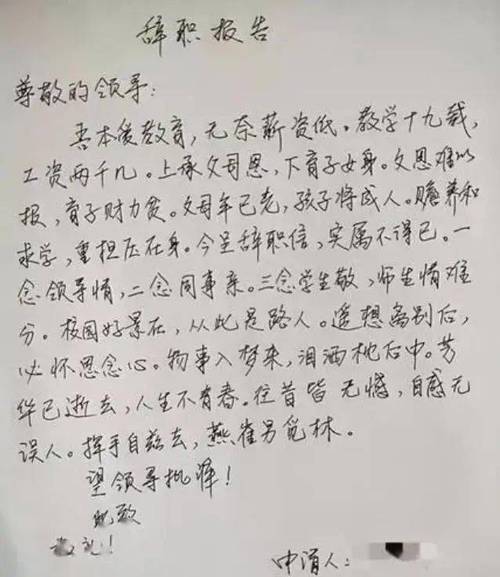 辞职报告
尊敬的领导:
吾本爱教育,无奈薪资低。教学十九载,
工资两千几。上承父母恩,下育子女身。父恩难以
报,育子财力贫。父母年已老,孩子将成人。赡养和
求学,重担压在身。今呈辞职信,实属不得已。一
念领导情,二念同事亲。三念学生敬,师生情难
分。校园好景在,从此是路人。遥想离别后,
必怀思念心。物事入梦来,泪洒枕后中。芳
华已逝去,人生不有春。往昔皆无憾,自感无
误人。挥手自兹去,燕雀另觅林。
望领导批准!
此致
敬礼!
申请人: